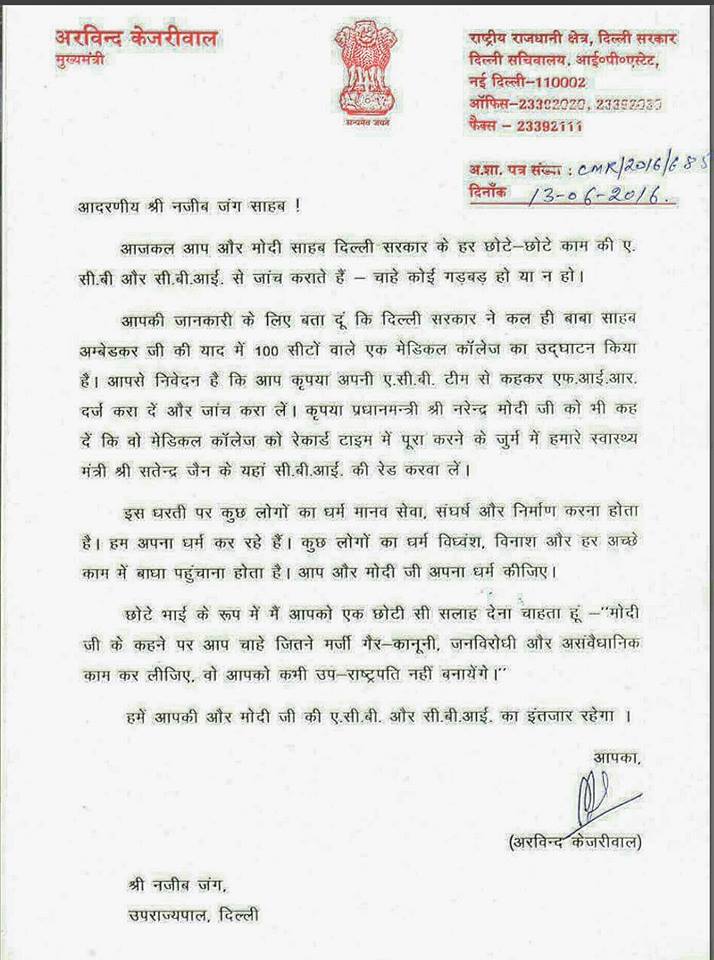 अरविन्द केजरीवाल
मुख्यमंत्री
सत्यमेव जयते
राष्ट्रीय राजधानी क्षेत्र, दिल्ली सरकार
दिल्ली सचिवालय, आई०पी०एस्टेट,
नई दिल्ली–110002
ऑफिस–23392020, 23392030
फैक्स – 23392111
अ.शा. पत्र संख्या : CMR/2016/685
दिनाँक 13-06-2016.
आदरणीय श्री नजीब जंग साहब !
आजकल आप और मोदी साहब दिल्ली सरकार के हर छोटे–छोटे काम की ए.
सी.बी और सी.बी.आई. से जांच कराते हैं – चाहे कोई गड़बड़ हो या न हो।
आपकी जानकारी के लिए बता दूं कि दिल्ली सरकार ने कल ही बाबा साहब
अम्बेडकर जी की याद में 100 सीटों वाले एक मेडिकल कॉलेज का उद्घाटन किया
है। आपसे निवेदन है कि आप कृपया अपनी ए.सी.बी. टीम से कहकर एफ.आई.आर.
दर्ज करा दें और जांच करा लें। कृपया प्रधानमन्त्री श्री नरेन्द्र मोदी जी को भी कह
दें कि वो मेडिकल कॉलेज को रेकार्ड टाइम में पूरा करने के जुर्म में हमारे स्वास्थ्य
मंत्री श्री सतेन्द्र जैन के यहां सी.बी.आई. की रेड करवा लें।
इस धरती पर कुछ लोगों का धर्म मानव सेवा, संघर्ष और निर्माण करना होता
है। हम अपना धर्म कर रहे हैं। कुछ लोगों का धर्म विध्वंश, विनाश और हर अच्छे
काम में बाधा पहुंचाना होता है। आप और मोदी जी अपना धर्म कीजिए।
छोटे भाई के रूप में मैं आपको एक छोटी सी सलाह देना चाहता हूं –"मोदी
जी के कहने पर आप चाहे जितने मर्जी गैर–कानूनी, जनविरोधी और असंवैधानिक
काम कर लीजिए, वो आपको कभी उप–राष्ट्रपति नहीं बनायेंगे।"
हमें आपकी और मोदी जी की ए.सी.बी. और सी.बी.आई. का इंतजार रहेगा ।
आपका,
(अरविन्द केजरीवाल)
श्री नजीब जंग,
उपराज्यपाल, दिल्ली